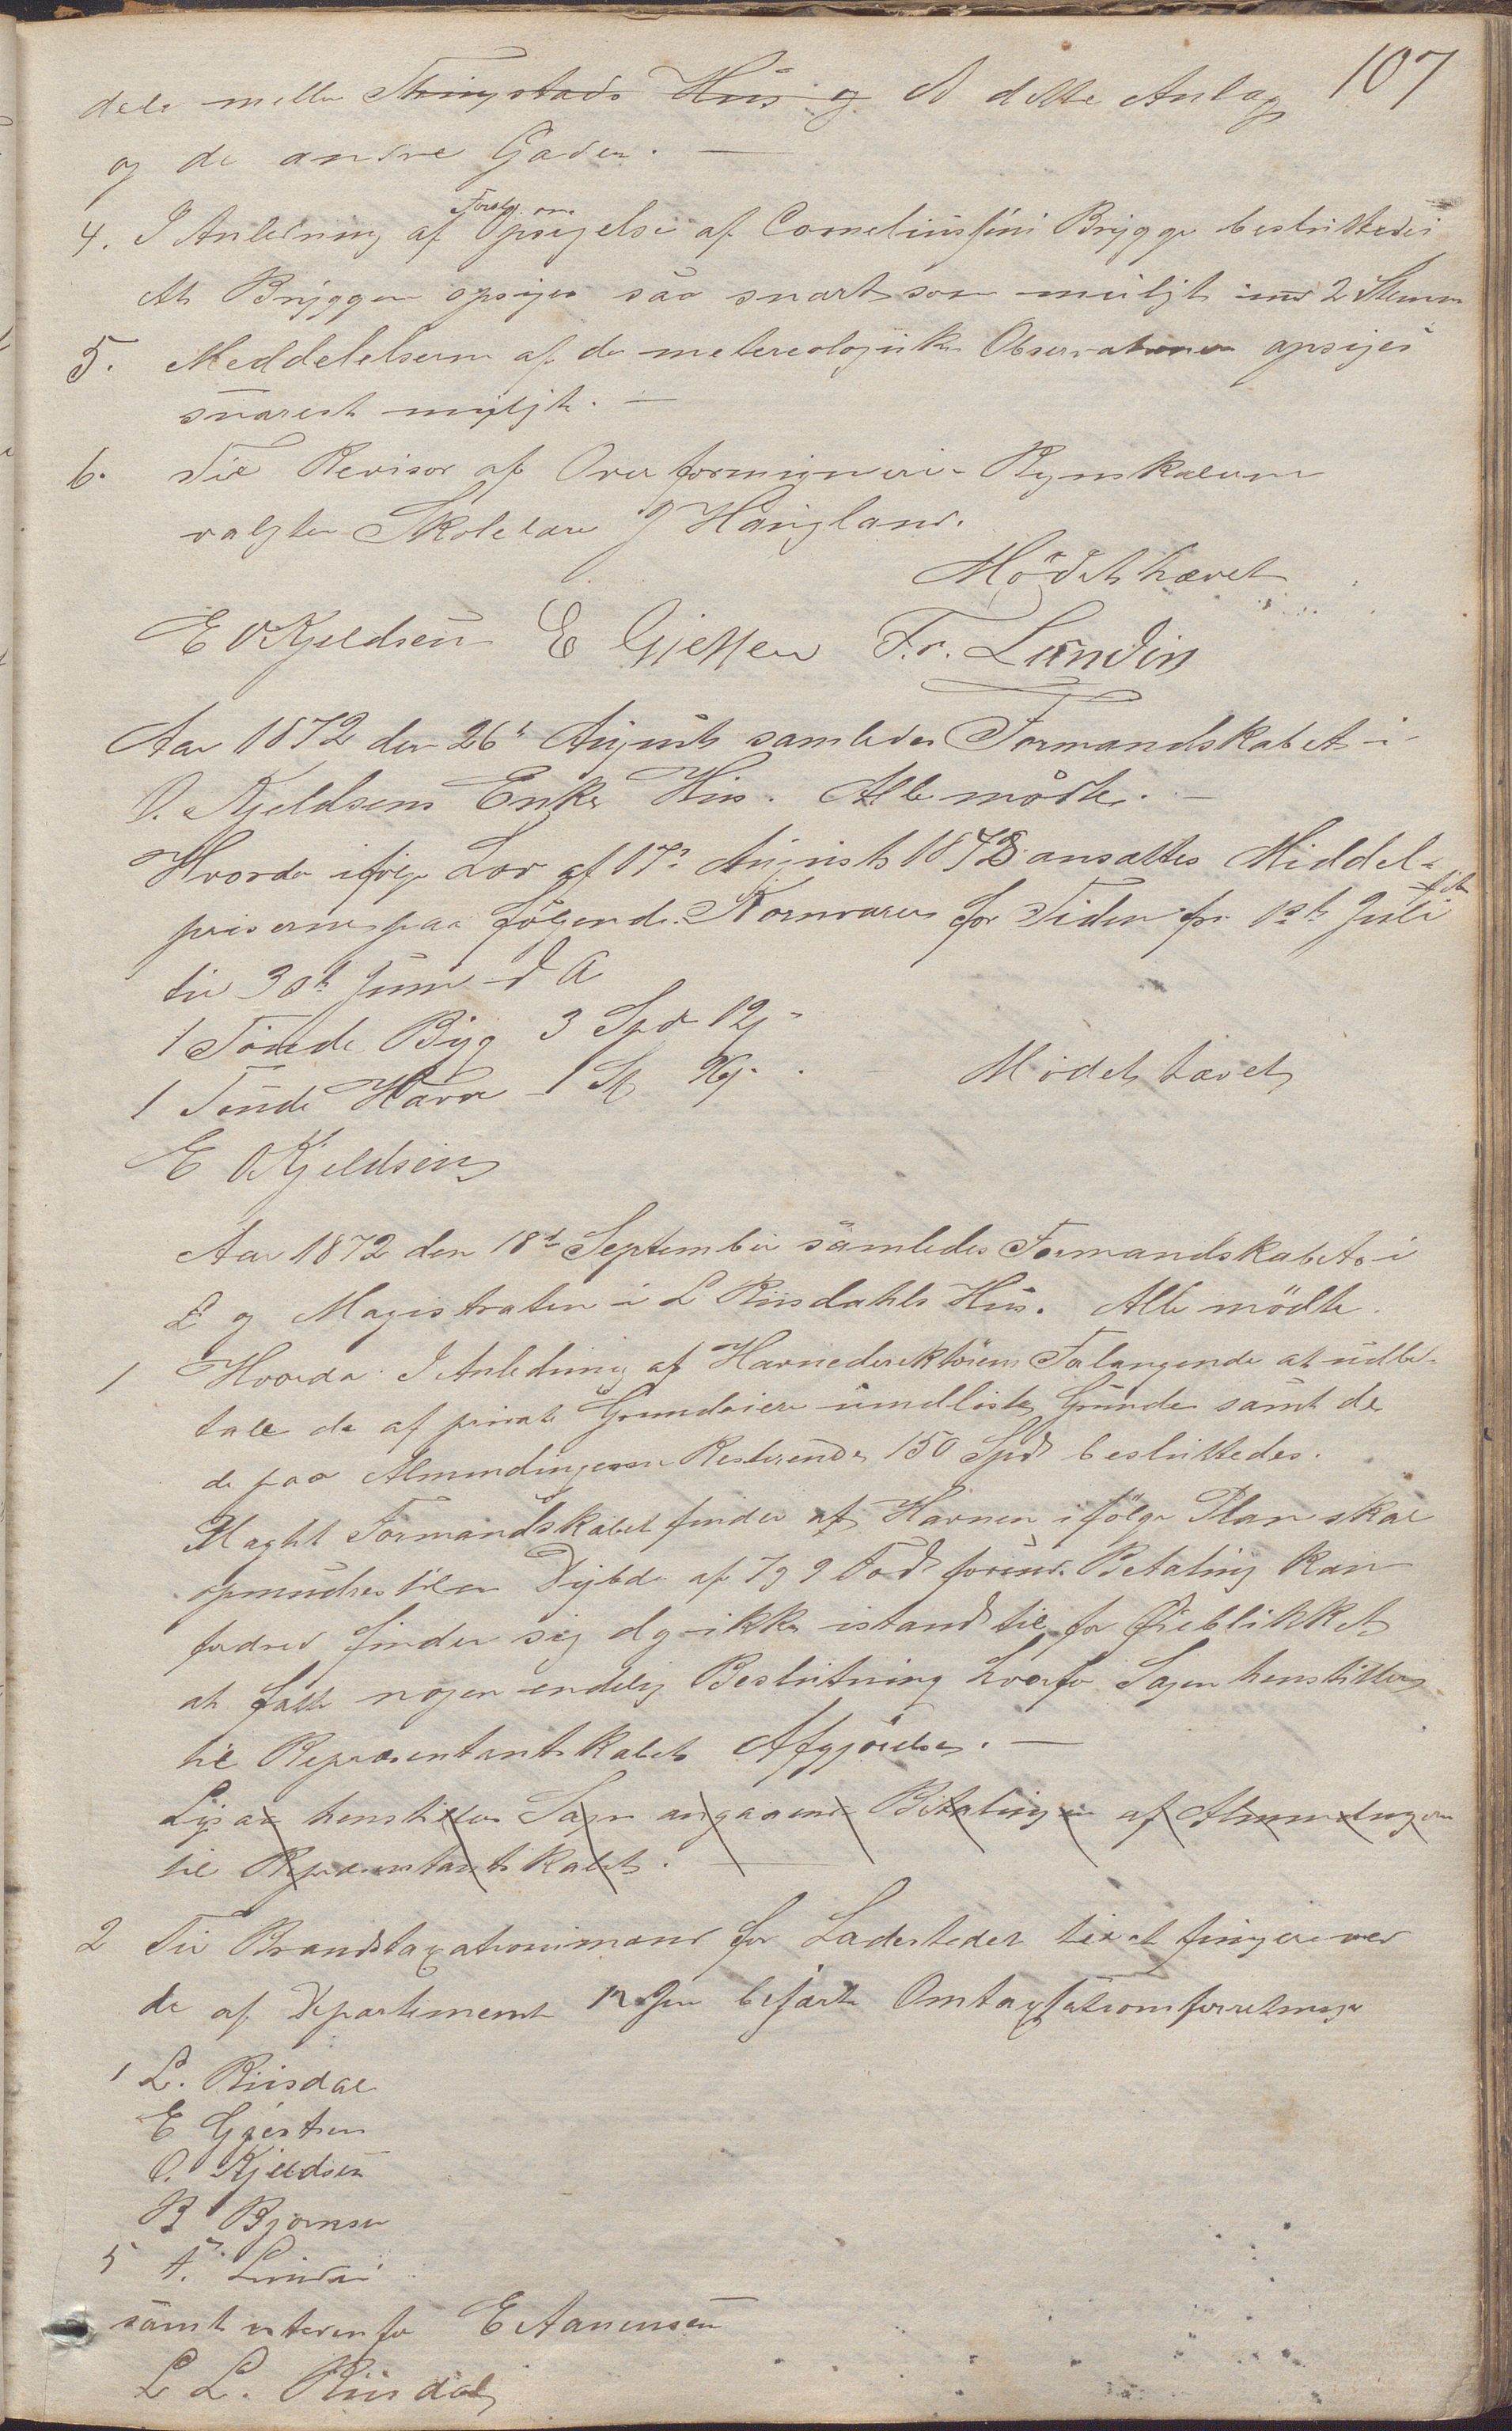 107
dele mellem Thingstads Hus og A dette Anlæg
og de andre Gader. —
Forslag om
4. I Anledning af Opsigelse af Corneliussens Brygge besluttedes
At Bryggen opsiges saa snart som muligt imod 2 Stemmer
5. Meddelelserne af de metereologiske Observationer opsiges
snarest muligt. —
6. Til Revisor af Overformynderi-Regnskaberne
valgtes Skolelærer J Haugland.
Mödet hævet
E O Kjeldsen E Gjessen Fr. Lundin
Aar 1872 den 26de August samledes Formandskabet i
O. Kjeldsens Enkes Hus. Alle mödte. —
Hvorda ifölge Lov af 17de August 1872 ansattes Middel-
priserne paa fölgende Kornvarer for Tiden fra 1ste Juli
til 30te Juni d A
1 Tönde Byg 3 Spd 12
1 Tönde Havre 1 Sp
Mödet hævet
E O Kjeldsen
Aar 1872 den 18de September samledes Formandskabet i
L og Magistraten i L Riisdahls Hus. Alle mödte.
1 Hvorda I Anledning af Havnedirektörens Forlangende at udbe-
tale de af private Grundeiere Grunde samt de
de paa Almendingerne Resterende 150 Spd besluttedes.
Maght Formandskabet finder at Havnen ifölge Plan skal
opmudres til en Dybde af 7 a 9 Fod forinden Betaling kan
fordres finder sig dog ikke istand til for Øieblikket
at fatte nogen endelig Beslutning hvorfor Sagen henstilles
til Repræsentantskabets Afgjörelse. —
Ligesaa henstilles Sagen angaaende Betalingen af Almendingerne
til Repræsentantskabet. —
2 Til Brandtaxationsmænd for Ladestedet til at fungere ved
de af Departement befalte Omtaxationsforretninger
1 L. Riisdal
E Gjestsen
O. Kjeldsen
B Björnsen
5 F. Lundin
samt udenfor E Aanensen
L L. Riisdal